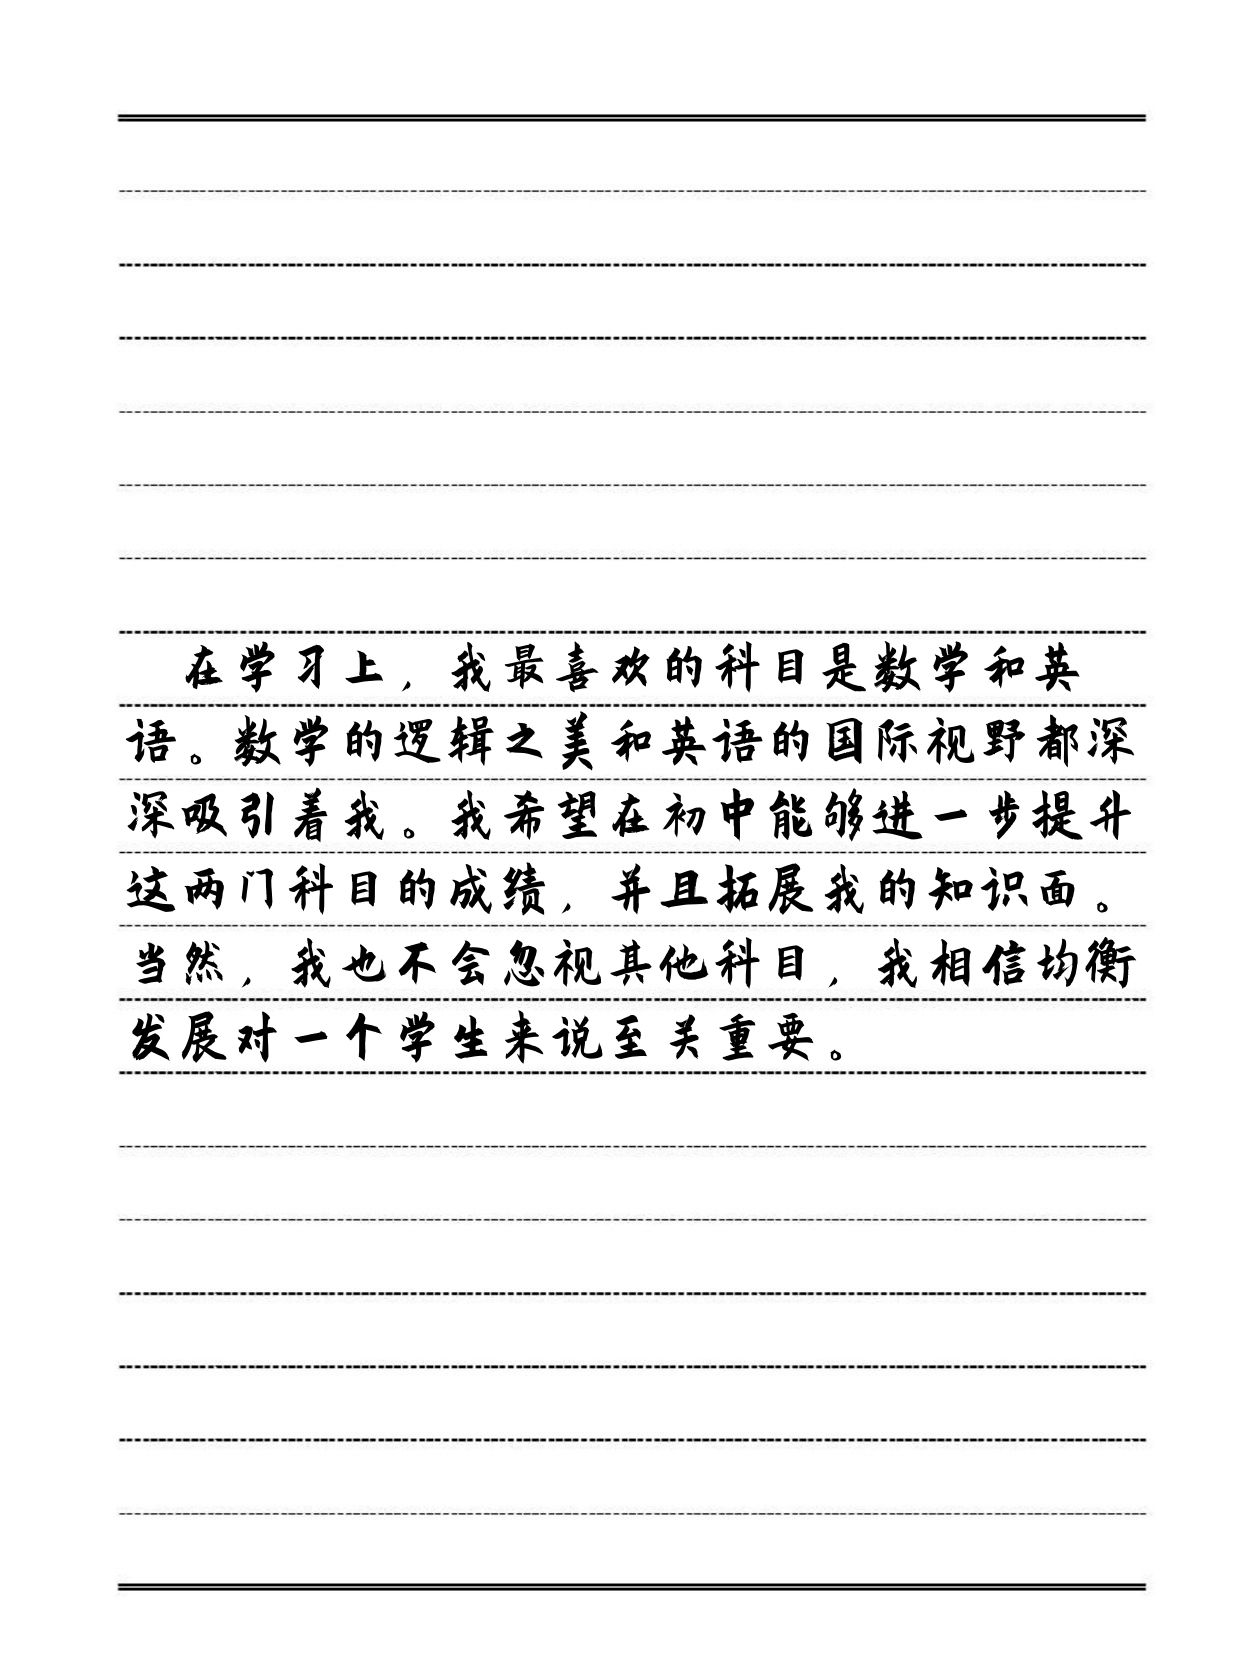 在学习上，我最喜欢的科目是数学和英
语。数学的逻辑之美和英语的国际视野都深
深吸引着我。我希望在初中能够进一步提升
这两门科目的成绩，并且拓展我的知识面。
当然，我也不会忽视其他科目，我相信均衡
发展对一个学生来说至关重要。